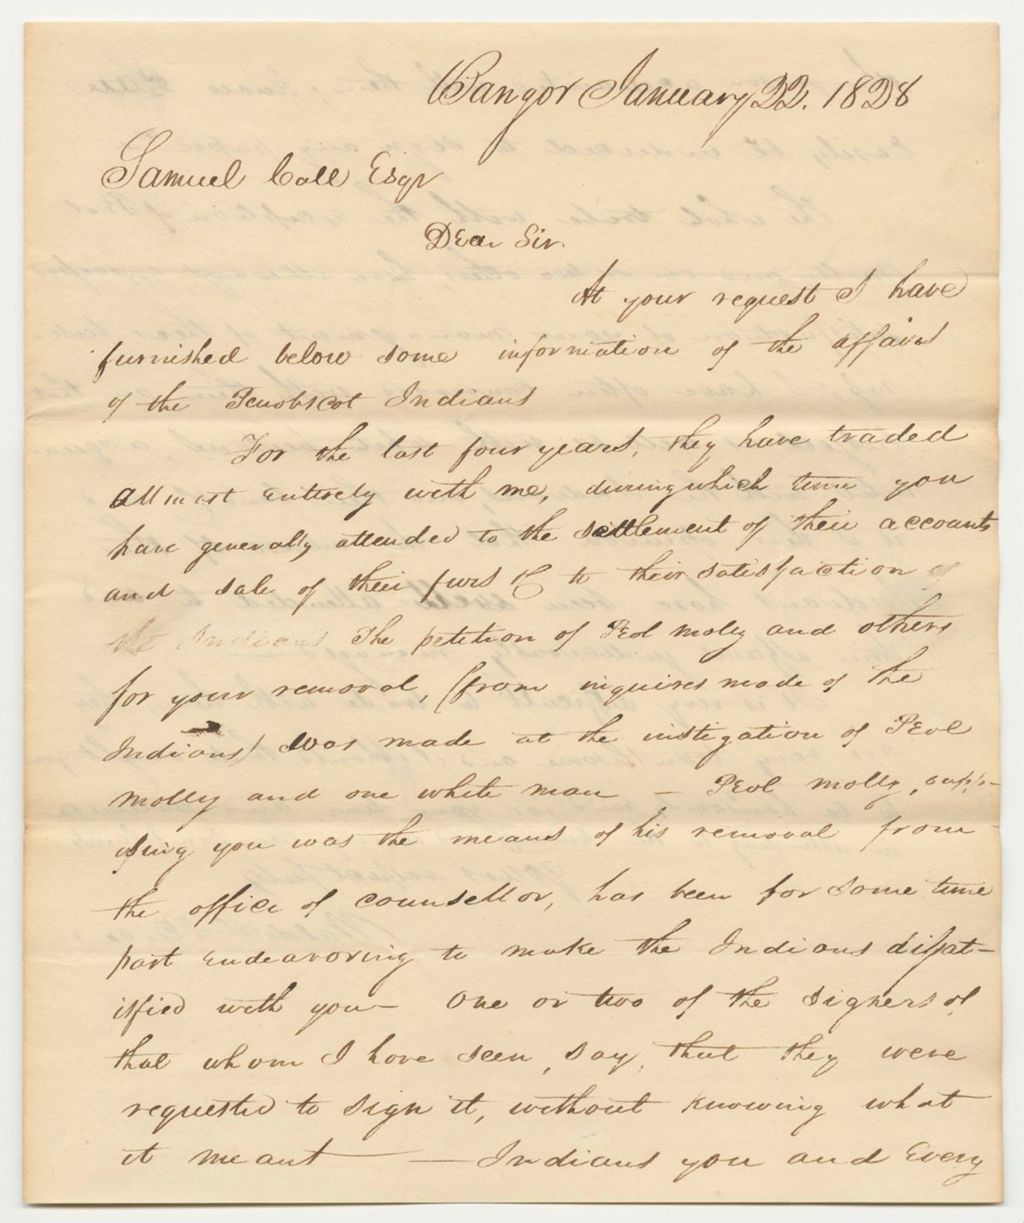 Bangor January 22. 1828
Samuel Call Esqr
Dear Sir.
At your request I have
furnished below some information of the affairs
of the Penobscot Indians
For the last four years, they have traded
allmost entirely with me, during which time you
have generally attended to the settlement of their accounts
and sale of their furs &C to their satisfaction of
the Indians The petition of Peol molly and others
for your removal, (from inquires made of the
Indians) was made at the instigation of Peol
molly and one white man — Peol molly, supp-
osing you was the means of his removal from
the office of counsellor, has been for some time
past endeavoring to make the Indians dissat-
isfied with you — One or two of the signers of
that whom I have seen, say, that they were
requested to sign it, without knowing what
it meant — — Indians you and Every